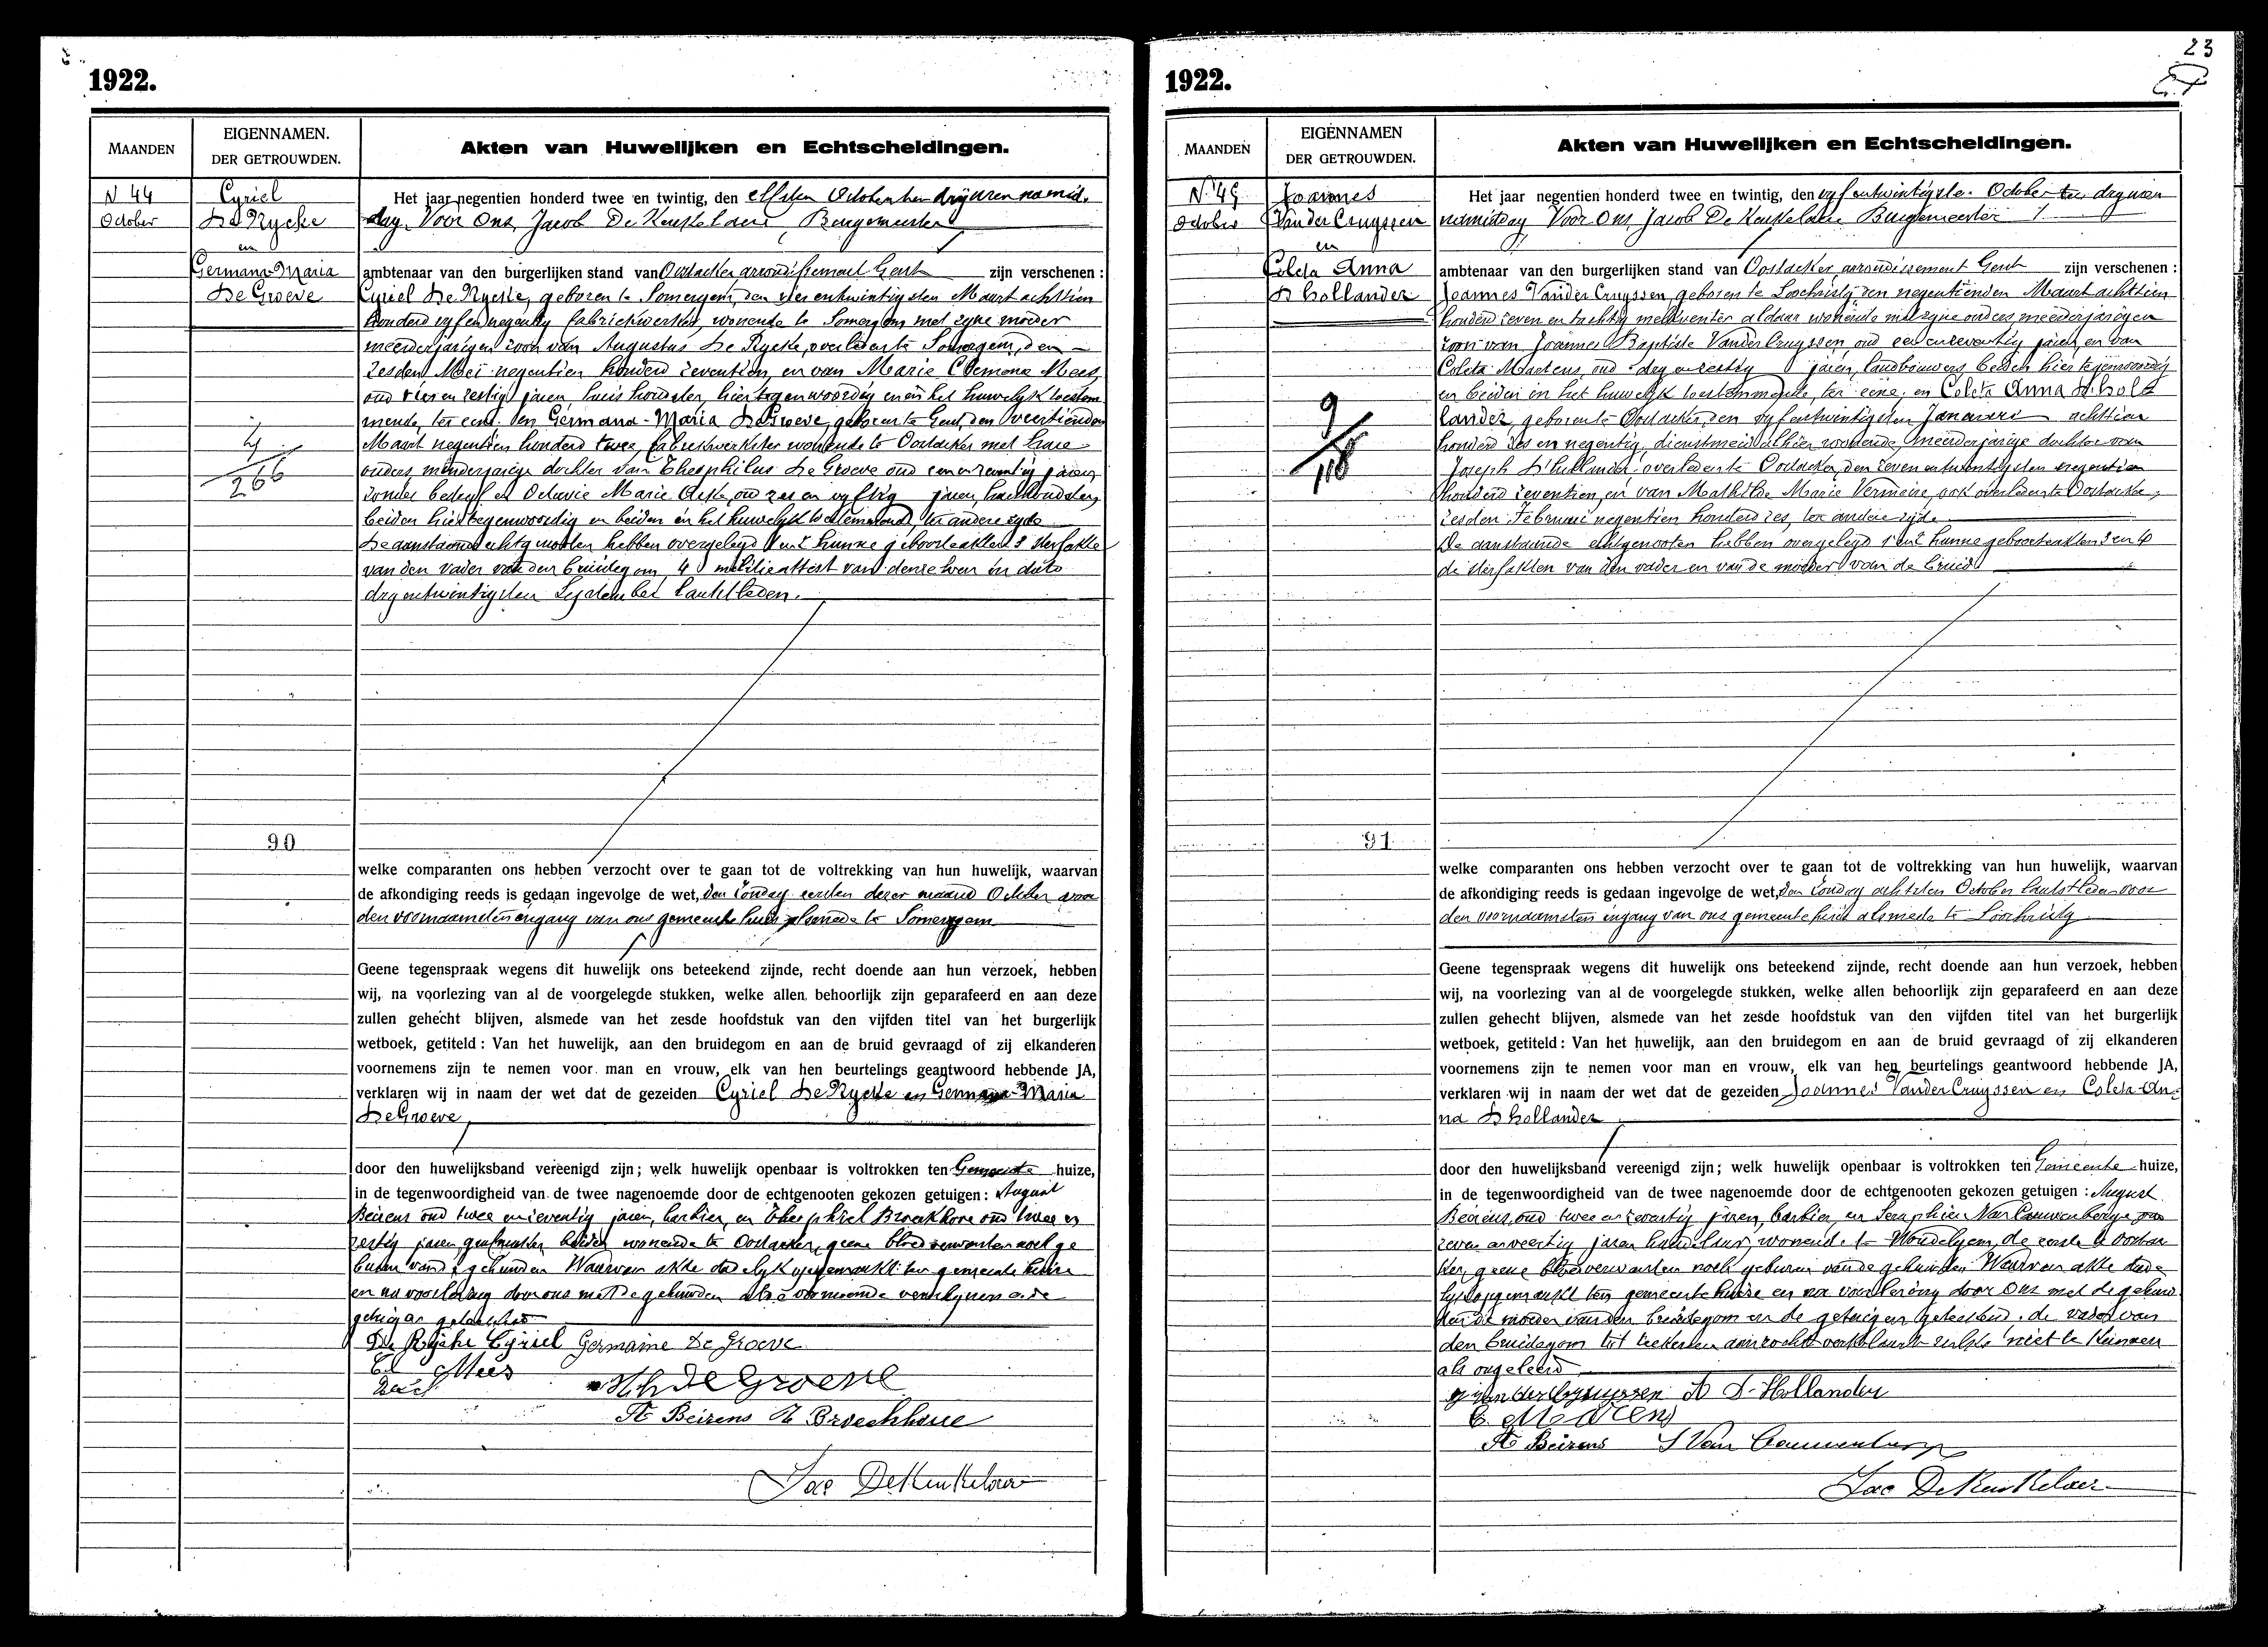 1922.
MAANDEN
EIGENNAMEN.
DER GETROUWDEN.
Akten van Huwelijken en Echtscheidingen.
N 44
October
Cyriel
De Rycke
en
Germana-Maria
De Groeve
4
266
90
Het jaar negentien honderd twee en twintig, den elfsten October ten drij uren namid-
dag. Voor Ons, Jacob De Keukelaere, Burgemeester
ambtenaar van den burgerlijken stand van Oostacker arrondissement Gent zijn verschenen :
Cyriel De Rycke, geboren te Somergem, den vier entwintigsten Maart achttien
honderd vyf en negentig fabriekwerker, wonende te Somergem met zyne moeder
meerderjarigen zoon van Augustus De Rycke, overleden te Somergem, den
zesden Mei negentien honderd zeventien, en van Marie Clemona Mees,
oud vier en zestig jaren, huishoudster, hier tegenwoordig en in het huwelyk toestem
mende, ter eene. en Germana-Maria De Groeve, geboren te Gent, den veertienden
Maart negentien honderd twee, fabriekwerkster wonende te Oostacker met hare
ouders, minderjarige dochter van Theophilus De Groeve oud een en zeventig jaren,
zonder bedryf en Octavie Marie oud zes en vyftig jaren, huishoudster,
beiden hier tegenwoordig en beiden in het huwelyk toestemmend, ter andere zyde
De aanstaande echtgenooten hebben overgelegd 1 en 2 hunne geboorteakten 3 sterfakte
van den vader van den bruidegom 4 militieattest van denzelven in dato
dry entwintigsten September laatstleden.
welke comparanten ons hebben verzocht over te gaan tot de voltrekking van hun huwelijk, waarvan
de afkondiging reeds is gedaan ingevolge de wet, den zondag eersten dezer maand October voor
den voornaamsten ingang van ons gemeente huis alsmede te Somergem
Geene tegenspraak wegens dit huwelijk ons beteekend zijnde, recht doende aan hun verzoek, hebben
wij, na voorlezing van al de voorgelegde stukken, welke allen behoorlijk zijn geparafeerd en aan deze
zullen gehecht blijven, alsmede van het zesde hoofdstuk van den vijfden titel van het burgerlijk
wetboek, getiteld : Van het huwelijk, aan den bruidegom en aan de bruid gevraagd of zij elkanderen
voornemens zijn te nemen voor man en vrouw, elk van hen beurtelings geantwoord hebbende JA,
verklaren wij in naam der wet dat de gezeiden Cyriel De Rycke en Germana-Maria
De Groeve
door den huwelijksband vereenigd zijn ; welk huwelijk openbaar is voltrokken ten Gemeente huize,
in de tegenwoordigheid van de twee nagenoemde door de echtgenooten gekozen getuigen : August
Beirens oud twee en zeventig jaren, barbier, en Theophiel Broeckhove oud twee en
zestig jaren, beiden wonende te Oostacker, geene bloedverwanten noch ge
buren van de gehuwden Waarvan akte dadelyk opgemaakt ten gemeente huize
en na voorlezing door ons met de gehuwden alle voornoemde verschynende
getuigen geteekend
De Rycke Cyriel Germaine De Groeve
Mees
De Groeve
A Beirens T Broeckhove
Jac De Keukelaer
1922.
23
MAANDEN
EIGENNAMEN
DER GETROUWDEN.
Akten van Huwelijken en Echtscheidingen.
N. 45
October
Joannes
Vander Cruyssen
en
Coleta Anna
D'hollander
9
118
91
Het jaar negentien honderd twee en twintig, den vyf entwintigste October ten dry uren
namiddag Voor Ons, Jacob De Keukelaere Burgemeester
ambtenaar van den burgerlijken stand van Oostacker, arrondissement Gent zijn verschenen :
Joannes Vander Cruyssen, geboren te Loochristy, den negentienden Maart achttien
honderd zeven en tachtig aldaar wonende met zyne ouders meerderjarigen
zoon van Joannes Baptiste Vander Cruyssen, oud een en zeventig jaren, en van
Coleta Martens, oud dry en zestig jaren, landbouwers, beiden hier tegenwoordig
en beiden in het huwelyk toestemmende, ter eene; en Coleta Anna D'hol
lander, geboren te Oostacker, den vyf entwintigsten Januari achttien
honderd zes en negentig, dienstmeid alhier wonende, meerderjarige dochter van
Joseph D'hollander overleden te Oostacker, den zeven entwintigsten negentien
honderd zeventien, en van Mathilde Marie Vermeire, ook overleden te Oostacker,
zesden Februari negentien honderd zes, ter andere zijde
De aanstaande echtgenooten hebben overgelegd 1 en 2 hunne geboorteakten 3 en 4
de sterfakten van den vader en van de moeder van de bruid
welke comparanten ons hebben verzocht over te gaan tot de voltrekking van hun huwelijk, waarvan
de afkondiging reeds is gedaan ingevolge de wet, den zondag achtsten October laatstleden voor
den voornaamsten ingang van ons gemeente huis alsmede te Loochristy
Geene tegenspraak wegens dit huwelijk ons beteekend zijnde, recht doende aan hun verzoek, hebben
wij, na voorlezing van al de voorgelegde stukken, welke allen behoorlijk zijn geparafeerd en aan deze
zullen gehecht blijven, alsmede van het zesde hoofdstuk van den vijfden titel van het burgerlijk
wetboek, getiteld : Van het huwelijk, aan den bruidegom en aan de bruid gevraagd of zij elkanderen
voornemens zijn te nemen voor man en vrouw, elk van hen beurtelings geantwoord hebbende JA,
verklaren wij in naam der wet dat de gezeiden Joannes Vander Cruyssen en Coleta An-
na D'hollander
door den huwelijksband vereenigd zijn ; welk huwelijk openbaar is voltrokken ten Gemeente huize,
in de tegenwoordigheid van de twee nagenoemde door de echtgenooten gekozen getuigen : August
Beirens, oud twee en zeventig jaren, barbier, en Seraphien Van Cauwenberge oud
zeven en veertig jaren handelaar, wonende te Wondelgem, de eerste te Oostac
ker, geene bloedverwanten noch geburen van de gehuwden Waarvan akte dade
lyk opgemaakt ten gemeente huize en na voorlezing door Ons met de gehuw
den de moeder van den bruidegom en de getuigen geteekend. de vader van
den bruidegom tot teekenen aanzocht verklaarde zulks niet te kunnen
als ongeleerd
J Van der Cruyssen A D'Hollander
C. Martens
A Beirens S Van Cauwenberge
Jac De Keukelaer